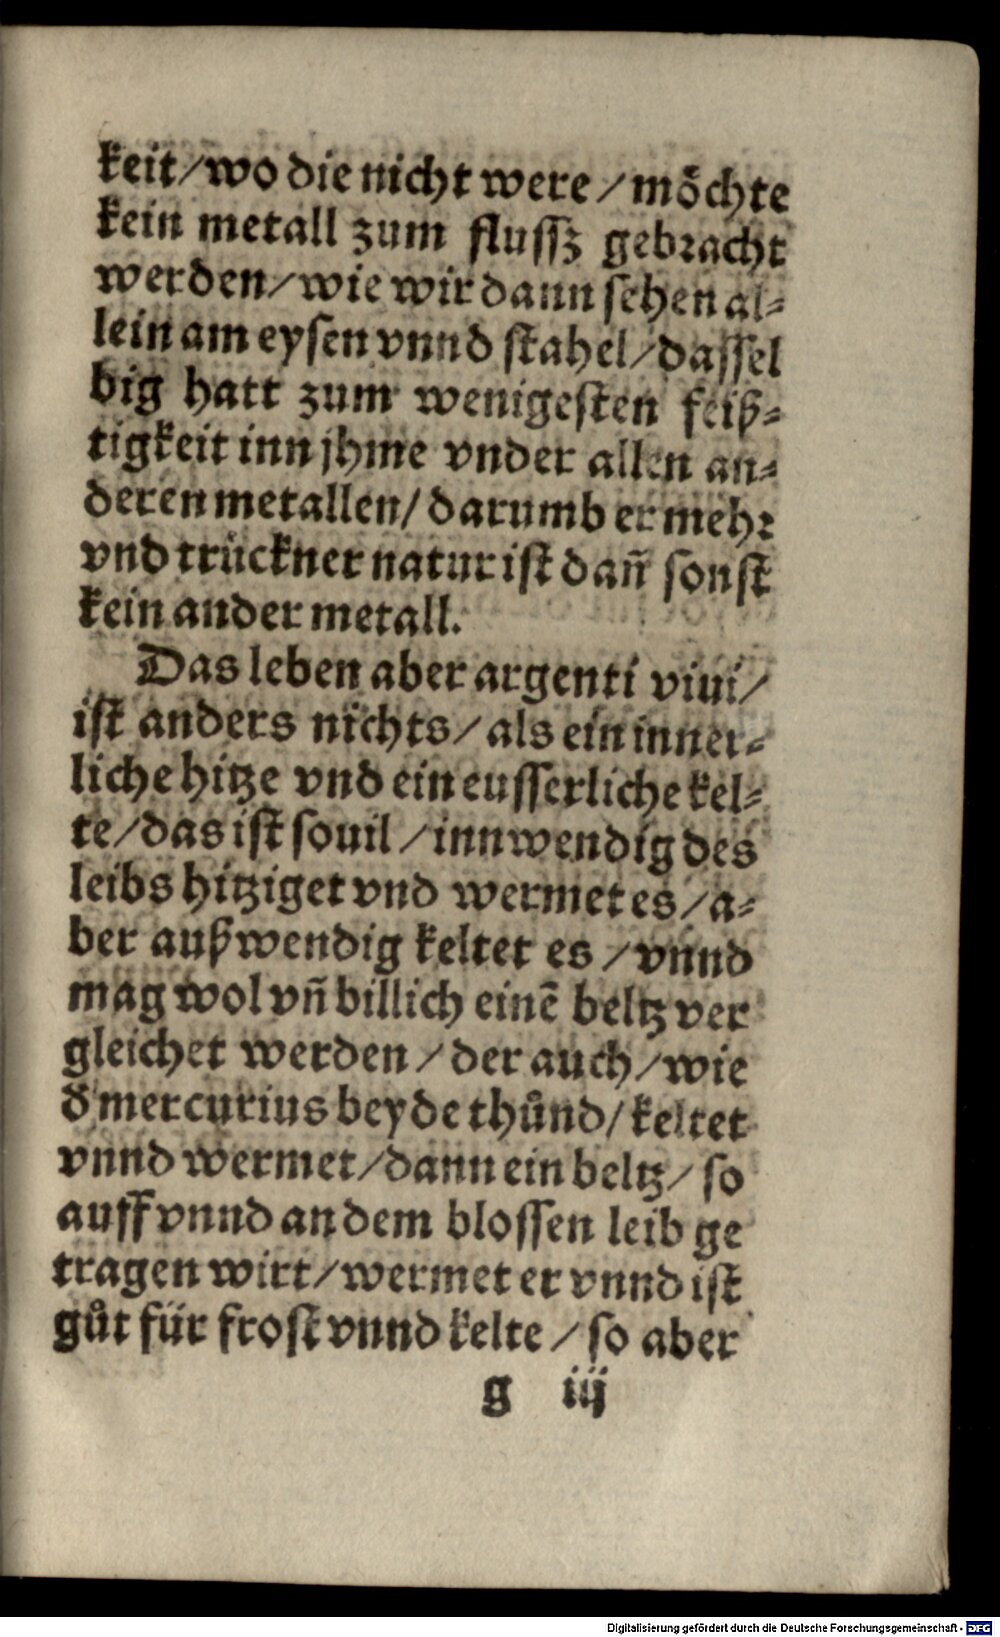 keit/wo die nicht were/möchte
kein metall zum flussz gebracht
werden/wie wir dann sehen al⸗
lein am eysen vnnd stahel/dassel
big hatt zum wenigesten feiß⸗
tigkeit inn jhme vnder allen an⸗
deren metallen/darumb er mehr
vnd trückner natur ist dañ sonst
kein ander metall.
Das leben aber argenti viui/
ist anders nichts/als ein inner⸗
liche hitze vnd ein eusserliche kel⸗
te/das ist souil/innwendig des
leibs hitziget vnd wermet es/a⸗
ber außwendig keltet es/vnnd
mag wol vñ billich einẽ beltz ver
gleichet werden/der auch/wie
d' mercurius beyde thůnd/keltet
vnnd wermet/dann ein beltz/so
auff vnnd an dem blossen leib ge
tragen wirt/wermet er vnnd ist
gůt für frost vnnd kelte/so aber
g iij
Digitalisierung gefördert durch die Deutsche Forschungsgemeinschaft - DFG